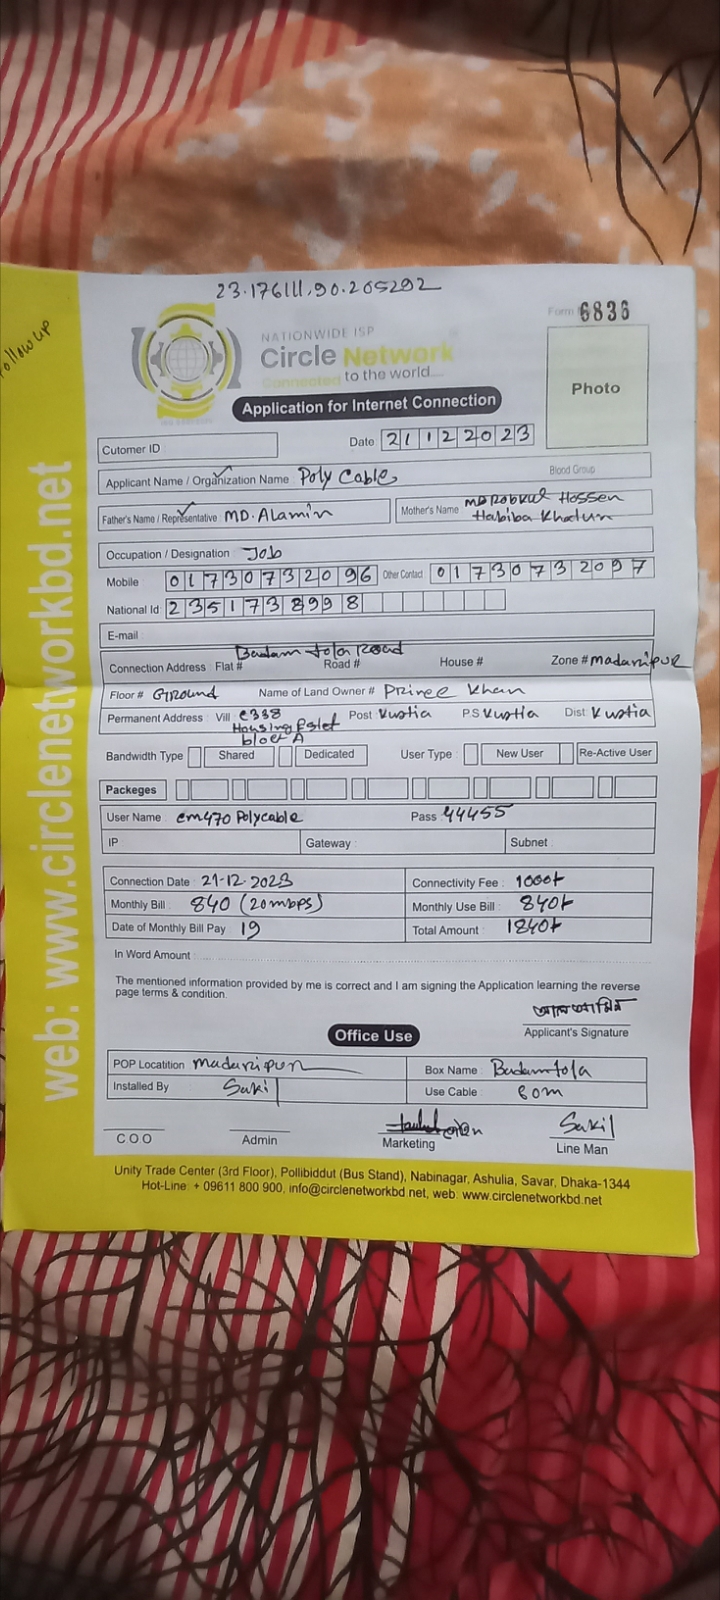 23.176111,90.205292
Follow up
Form 6836
NATIONWIDE ISP
Circle Network
Connected to the world....
Photo
Application for Internet Connection
Cutomer ID
Date 21122023
Applicant Name / Organization Name Poly Cable
Blood Group
Father's Name / Representative MD. Alamin
Mother's Name MD Robiul Hossen
Habiba Khatun
Occupation / Designation Job
Mobile 01730732096 Other Contact 01730732097
National Id 2351738998
E-mail
Badam tola Road
Connection Address : Flat # Road # House # Zone # madaripur
Floor # Ground Name of Land Owner # Prince Khan
Permanent Address : Vill c338 Post Kustia P.S Kustia Dist Kustia
Housing Estet
block A
Bandwidth Type Shared Dedicated User Type : New User Re-Active User
Packeges
User Name : cm470 Polycable Pass 44455
IP Gateway : Subnet
Connection Date : 21-12-2023 Connectivity Fee : 1000/-
Monthly Bill : 840 (20mbps) Monthly Use Bill : 840/-
Date of Monthly Bill Pay 19 Total Amount : 1840/-
In Word Amount :
The mentioned information provided by me is correct and I am signing the Application learning the reverse
page terms & condition.
আলআমিন
Applicant's Signature
Office Use
POP Locatition madaripur Box Name : Badamtola
Installed By Sakil Use Cable : 80m
Sakil
COO Admin Marketing Line Man
web: www.circlenetworkbd.net
Unity Trade Center (3rd Floor), Pollibiddut (Bus Stand), Nabinagar, Ashulia, Savar, Dhaka-1344
Hot-Line: + 09611 800 900, info@circlenetworkbd.net, web: www.circlenetworkbd.net